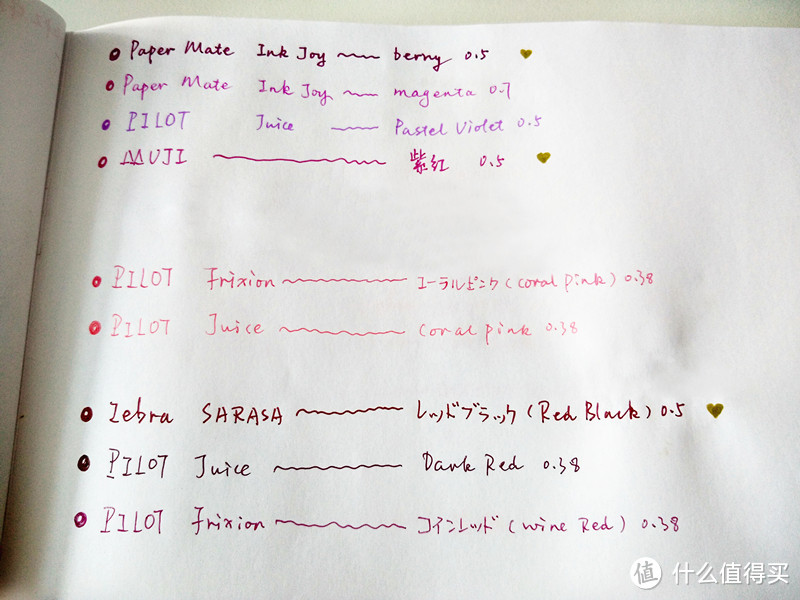 Paper Mate Ink Joy berry 0.5
Paper Mate Ink Joy magenta 0.7
PILOT Juice Pastel Violet 0.5
MUJI 紫红 0.5
PILOT Frixion コーラルピンク (coral pink) 0.38
PILOT Juice coral pink 0.38
Zebra SARASA レッドブラック (Red Black) 0.5
PILOT Juice Dark Red 0.38
PILOT Frixion ワインレッド (wine Red) 0.38
值 什么值得买